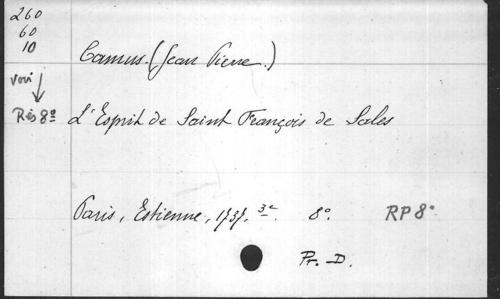 260
60
10
Camus. (Jean Pierre.)
voir
Rés 8º L'Esprit de Saint François de Sales
Paris, Estienne, 1737. 3e. 8º. RP 8º
Pr. D.